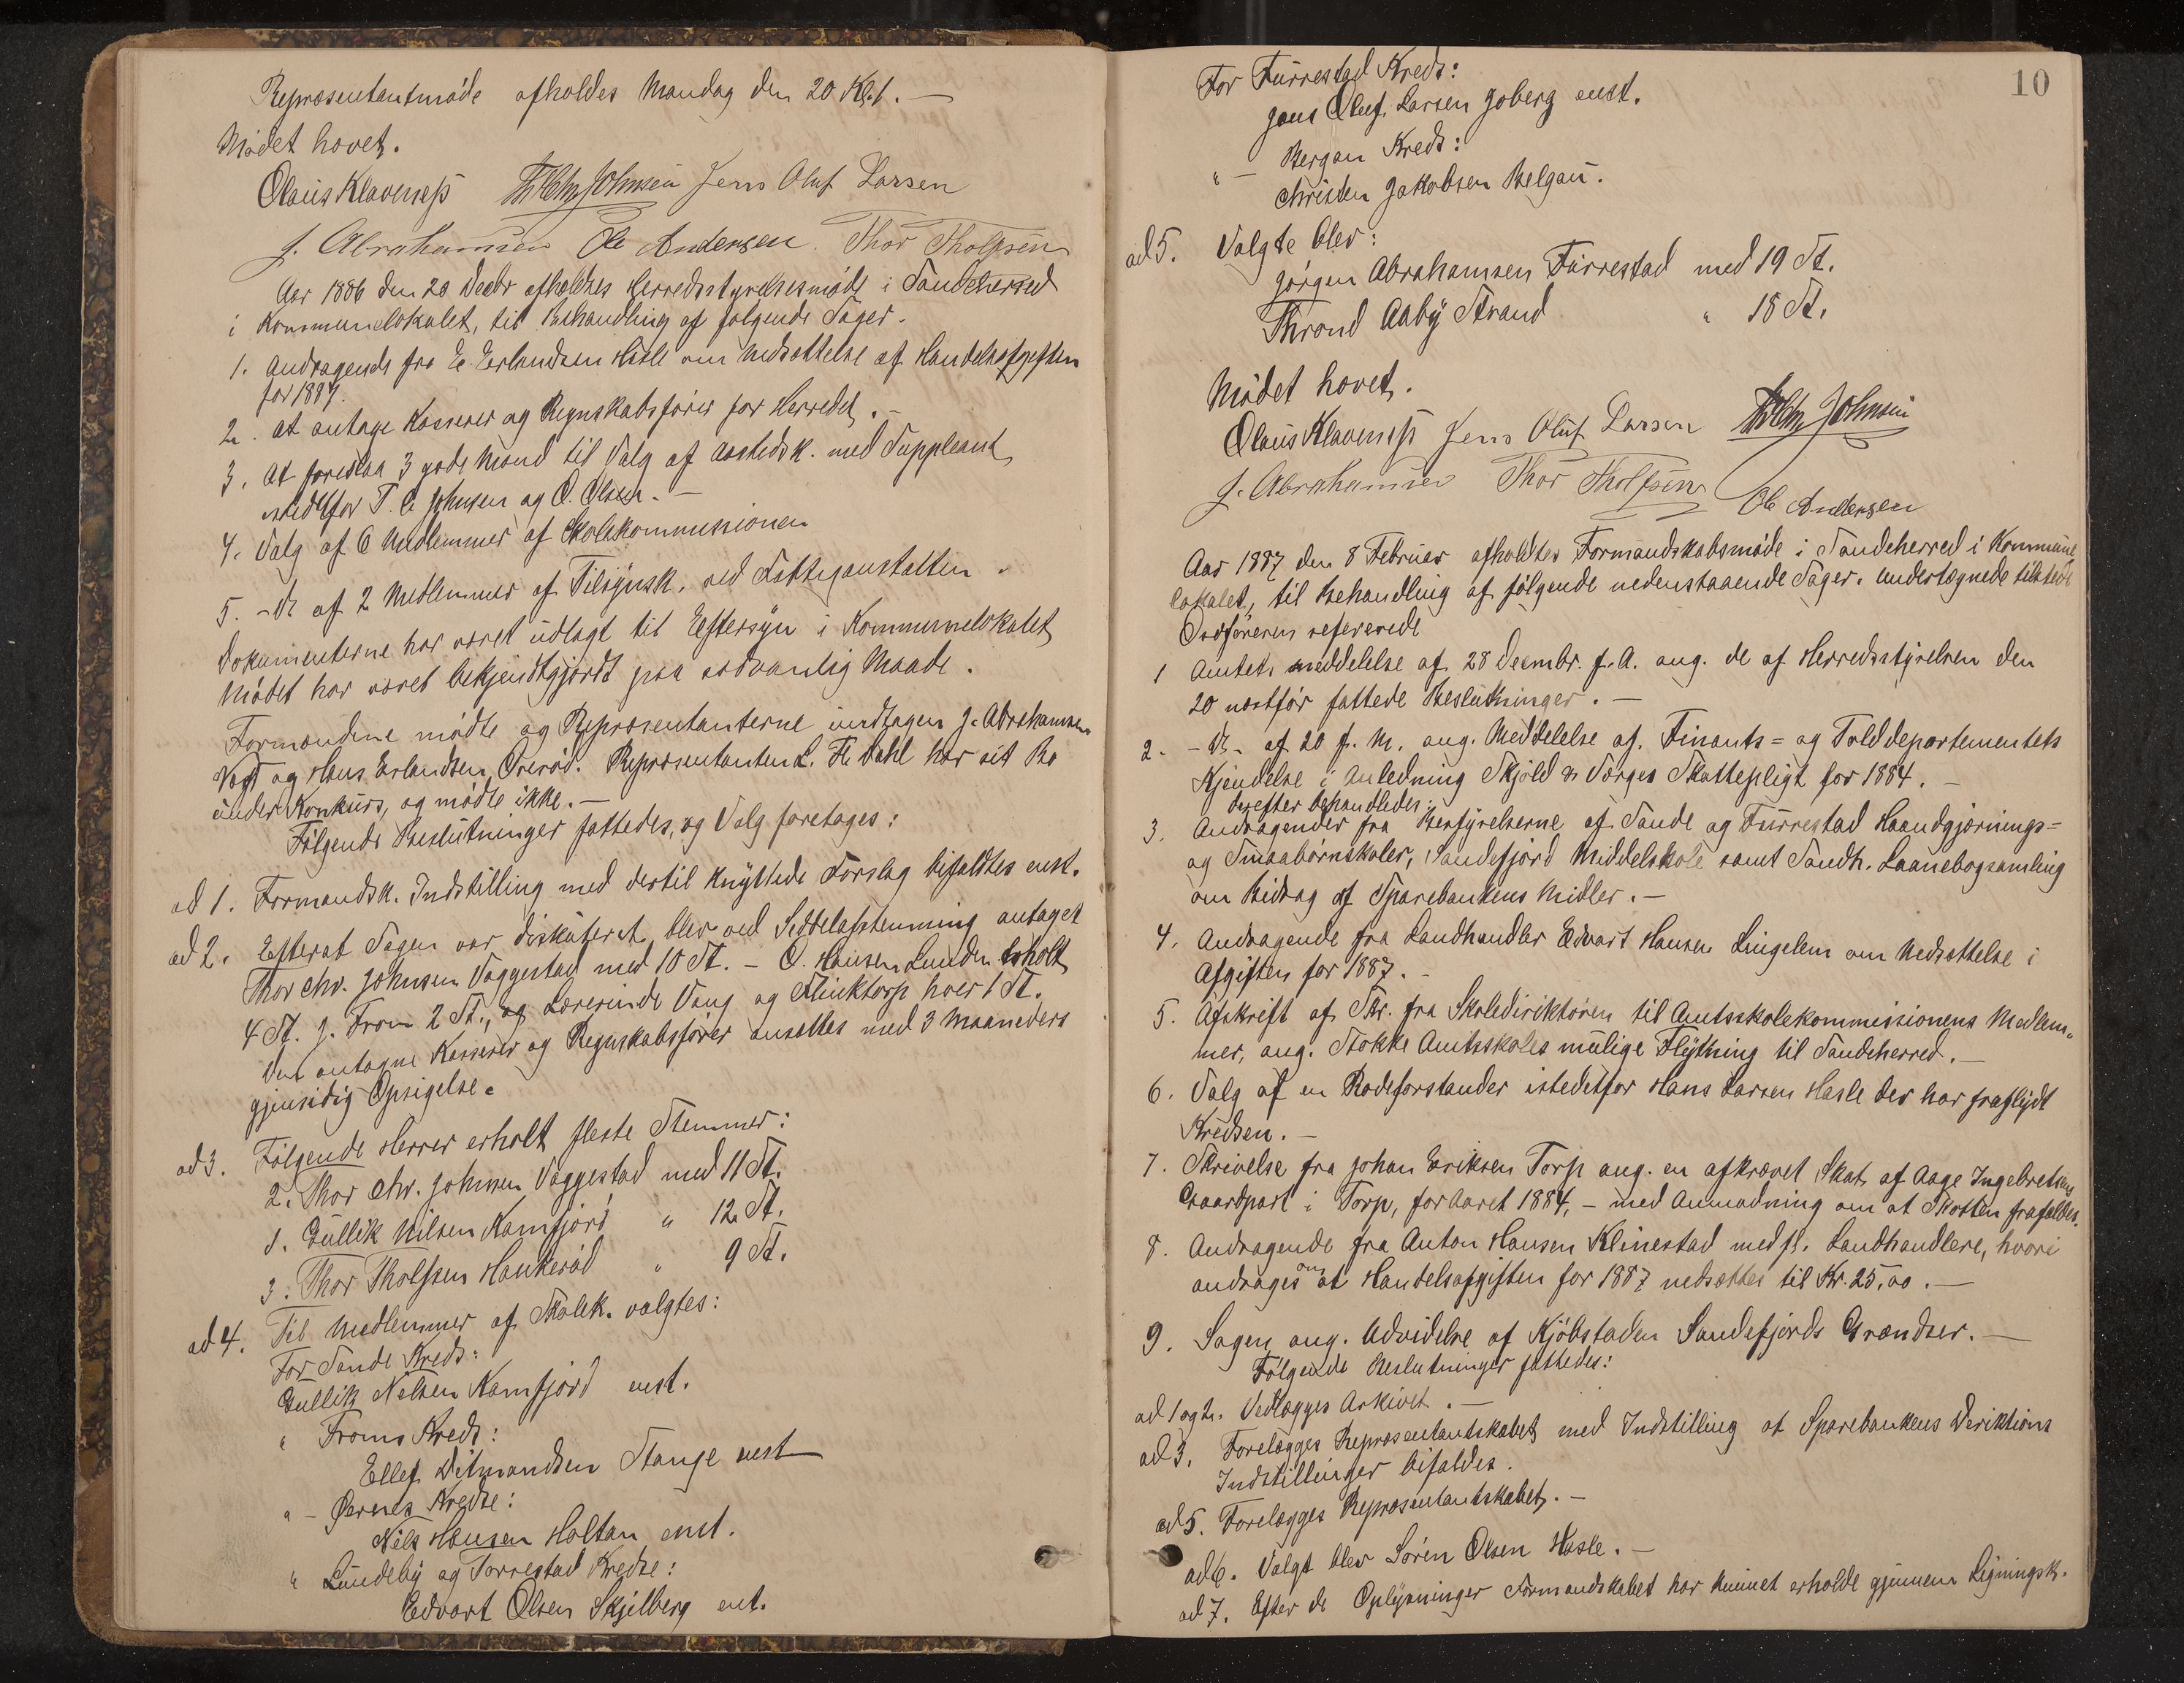 Repræsentantmöde afholdes Mandag den 20 Kl. 1. —
Mödet hævet.
Olaus Klaveness Th Chr Johnsen Jens Oluf Larsen
J. Abrahamsen Ole Andersen. Thor Tholfsen
Aar 1886 den 20 Decbr afholdtes Herredsstyrelsesmöde i Sandeherred
i Kommunelokalet, til Behandling af fölgende Sager.
1. Andragende fra E. Erlandsen Hasle om Nedsættelse af Handelsafgiften
for 1887.
2. At antage Kasserer og Regnskabsförer for Herredet. –
3. At foreslaa 3 gode Mænd til Valg af Aastedsk. med Suppleant
istedetfor T. C. Johnsen og O. Olsen. –
4. Valg af 6 Medlemmer af Skolekommissionen
5. – do af 2 Medlemmer af Tilsynsk. ved Fattiganstalten.
Dokumenterne har været udlagt til Eftersyn i Kommunelokalet
Mödet har været bekjendtgjordt paa sædvanlig Maade.
Formændene mödte og Repræsentanterne undtagen J. Abrahamsen
Vøst og Hans Erlandsen Orerød. Repræsentanten L. Fr. Dahl har sit Bo
under Konkurs, og mödte ikke. –
Fölgende Beslutninger fattedes, og Valg foretages:
ad 1. Formandsk. Indstilling med dertil knyttede Forslag bifaldtes enst.
ad 2. Efterat Sagen var diskuteret blev ved Seddelafstemning antaget
Thor Chr. Johnsen Vaggestad med 10 St. – O. Hansen Lunden erholdt
4 St. J. From 2 St., og Lærerinde Vang og Flinktorp hver 1 St.
Den antagne Kasserer og Regnskabsförer ansættes med 3 Maaneders
gjensidig Opsigelse.
ad 3. Fölgende Herrer erholdt fleste Stemmer:
2. Thor Chr. Johnsen Vaggestad med 11 St.
1. Gullik Nilsen Kamfjord " 12 St.
3. Thor Tholfsen Haukeröd " 9 St.
ad 4. Til Medlemmer af Skolek. valgtes:
For Sande Kreds:
Gullik Nilsen Kamfjord enst.
" Froms Kreds:
Ellef Ditmandsen Stange enst
" – Øernes Kredse:
Nils Hansen Holtan enst.
" Lundeby og Torrestad Kredse:
Edvart Olsen Skjelberg ent.
10
For Furrestad Kreds:
Jens Oluf Larsen Joberg enst.
" – Bergan Kreds:
Christen Jakobsen Helgau.
ad 5. Valgte blev:
Jörgen Abrahamsen Furrestad med 19 St.
Thrond Aaby Strand " 18 St.
Mödet hævet.
Olaus Klaveness Jens Oluf Larsen Th Chr Johnsen
J. Abrahamsen Thor Tholfsen Ole Andersen
Aar 1887 den 8 Februar afholdtes Formandskabsmöde i Sandeherred i Kommune
lokalet, til Behandling af fölgende nedenstaaende Sager. Undertegnede tilstede
Ordföreren refererede
1 Amtets meddelelse af 28 Decembr. f. A. ang. de af Herredsstyrelsen den
20 næstför fattede Beslutninger. –
2. – do – af 20 f. M. ang. Meddelelse af Finants= og Tolddepartementets
Kjendelse i Anledning Skjöld & Værges Skattepligt for 1884. –
derefter behandledes:
3. Andragender fra Bestyrelserne af Sande og Furrestad Haandgjernings=
og Smaabörnskoler, Sandefjord Middelskole samt Sandh. Laanebogsamling
om Bidrag af Sparebankens Midler. –
4. Andragende fra Landhandler Edvart Hansen Lingelem om Nedsættelse i
Afgiften for 1887. –
5. Afskrift af Skr. fra Skoledirektören til Amtsskolekommissionens Medlem„
mer, ang. Stokke Amtsskoles mulige Flytning til Sandeherred. –
6. Valg af en Rodeforstander istedetfor Hans Larsen Hasle der har fraflydt
Kredsen. –
7. Skrivelse fra Johan Eriksen Torp ang. en afkrævet Skat af Aage Ingebretsens
Gaardpart i Torp, for Aaret 1884, – med Anmodning om at Skatten frafaldes.
8. Andragende fra Anton Hansen Klinestad med fl. Landhandlere, hvori
andrages om at Handelsafgiften for 1887 nedsættes til Kr. 25,00. –
9. Sagen ang. Udvidelse af Kjöbstaden Sandefjords Grændser. –
Fölgende Beslutninger fattedes:
ad 1 og 2. Vedlægges Arkivet. –
ad 3. Forelægges Repræsentantskabet med Indstilling at Sparebankens Direktions
Indstillinger bifaldes.
ad 5. Forelægges Repræsentantskabet. –
ad 6. Valgt blev Sören Olsen Hasle. –
ad 7. Efter de Oplysninger Formandskabet har kunnet erholde gjennem Ligningsk.